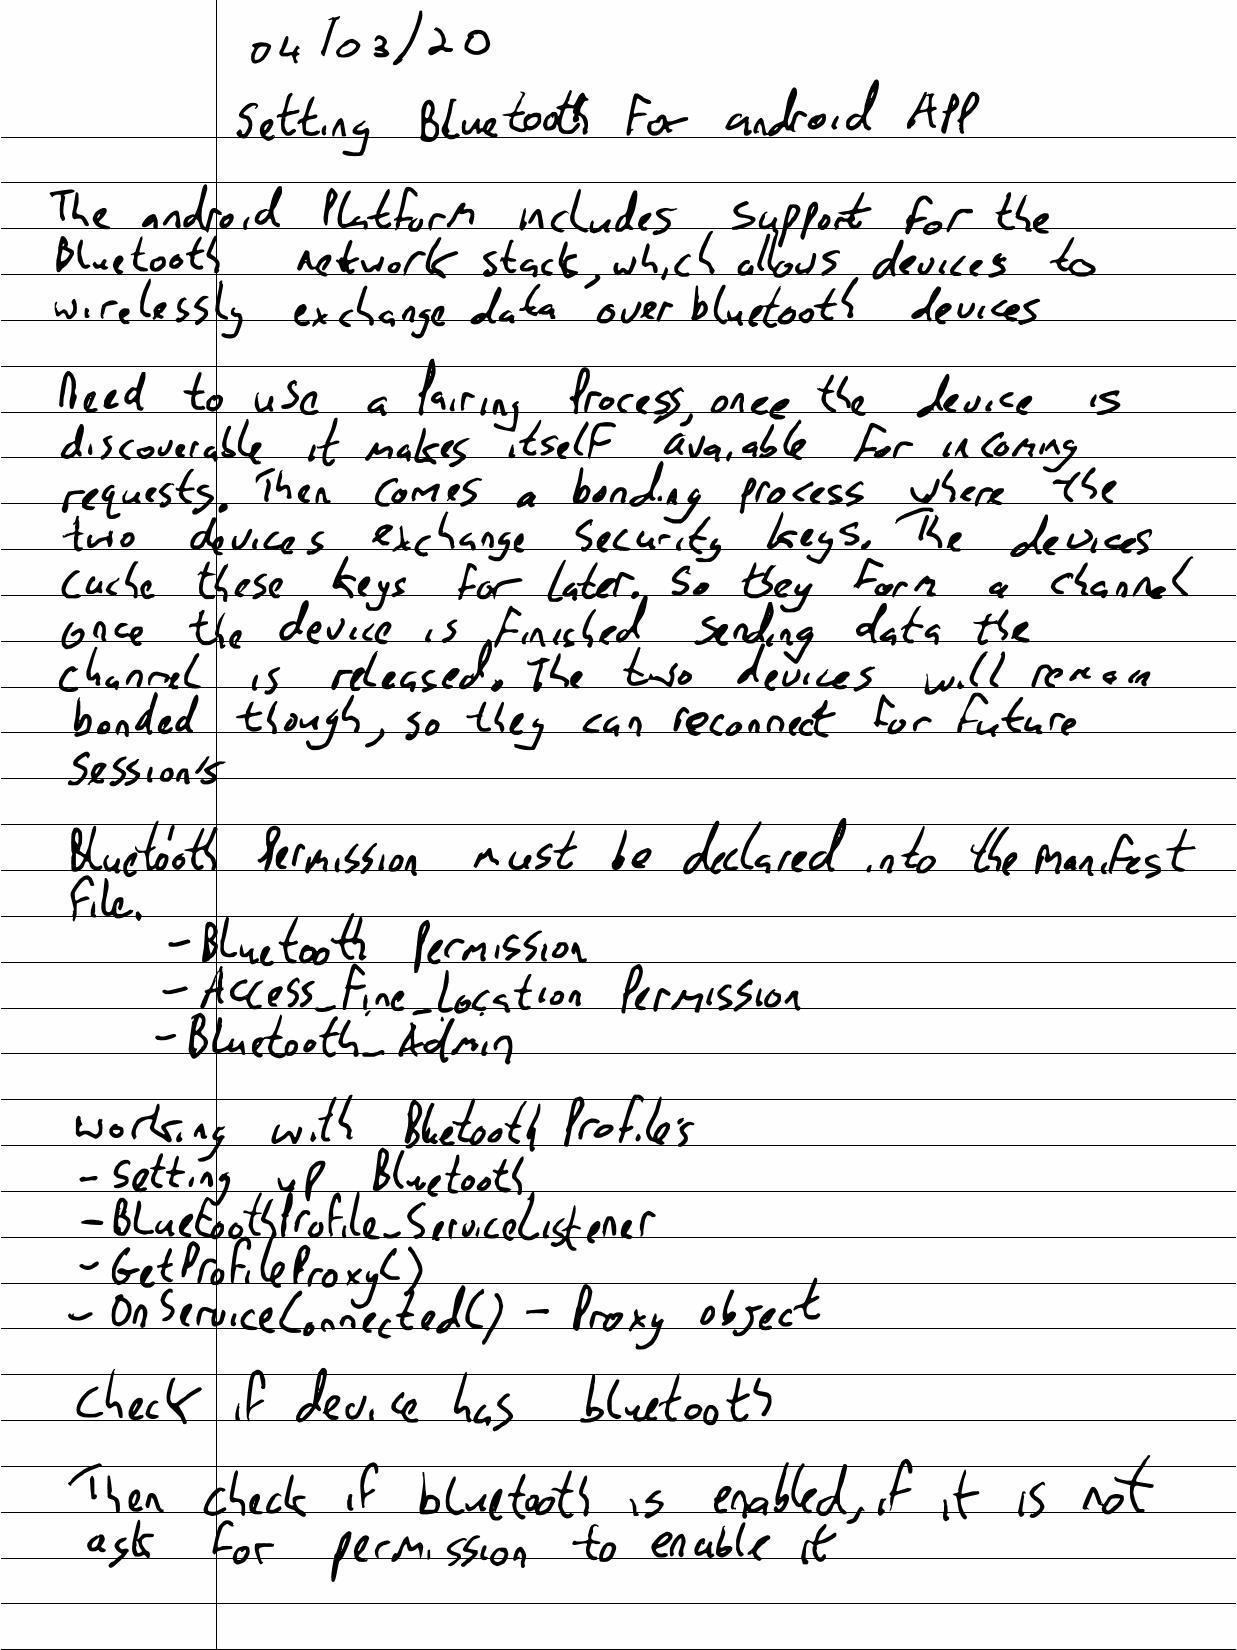 04/03/20
Setting Bluetooth For android App
The android Platform includes support for the
Bluetooth network stack, which allows devices to
wirelessly exchange data over bluetooth devices
Need to use a Pairing Process, once the device is
discoverable it makes itself avaiable for incoming
requests. Then comes a bonding process where the
two devices exchange security keys. The devices
cache these keys for later. So they form a channel
once the device is finished sending data the
channel is released. The two devices will remain
bonded though, so they can reconnect for future
session's
Bluetooth Permission must be declared into the manifest
file.
- Bluetooth Permission
- Access_Fine_Location Permission
- Bluetooth_Admin
working with Bluetooth Profile's
- setting up Bluetooth
- BluetoothProfile_ServiceListener
- GetProfileProxy()
- OnServiceConnected() - Proxy object
Check if device has bluetooth
Then check if bluetooth is enabled, if it is not
ask for permission to enable it